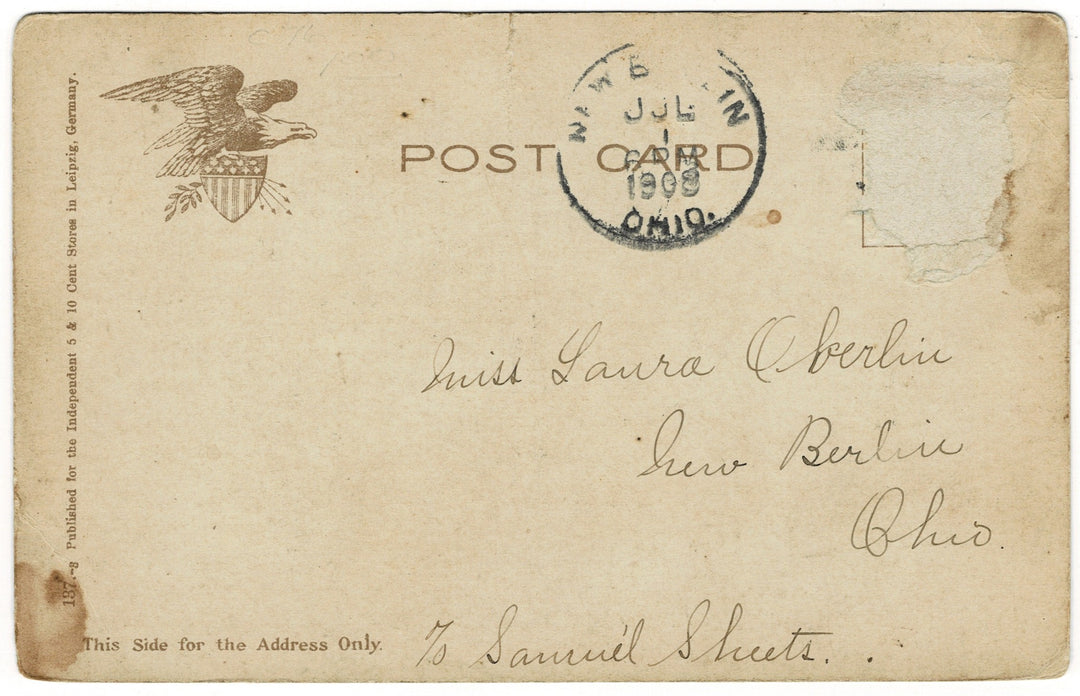 137.-8 Published for the Independent 5 & 10 Cent Stores in Leipzig, Germany.
POST CARD
NEW B LIN
JUL
1
6 PM
1908
OHIO.
Miss Laura Oberlin
New Berlin
Ohio.
℅ Samuel Sheets.
This Side for the Address Only.